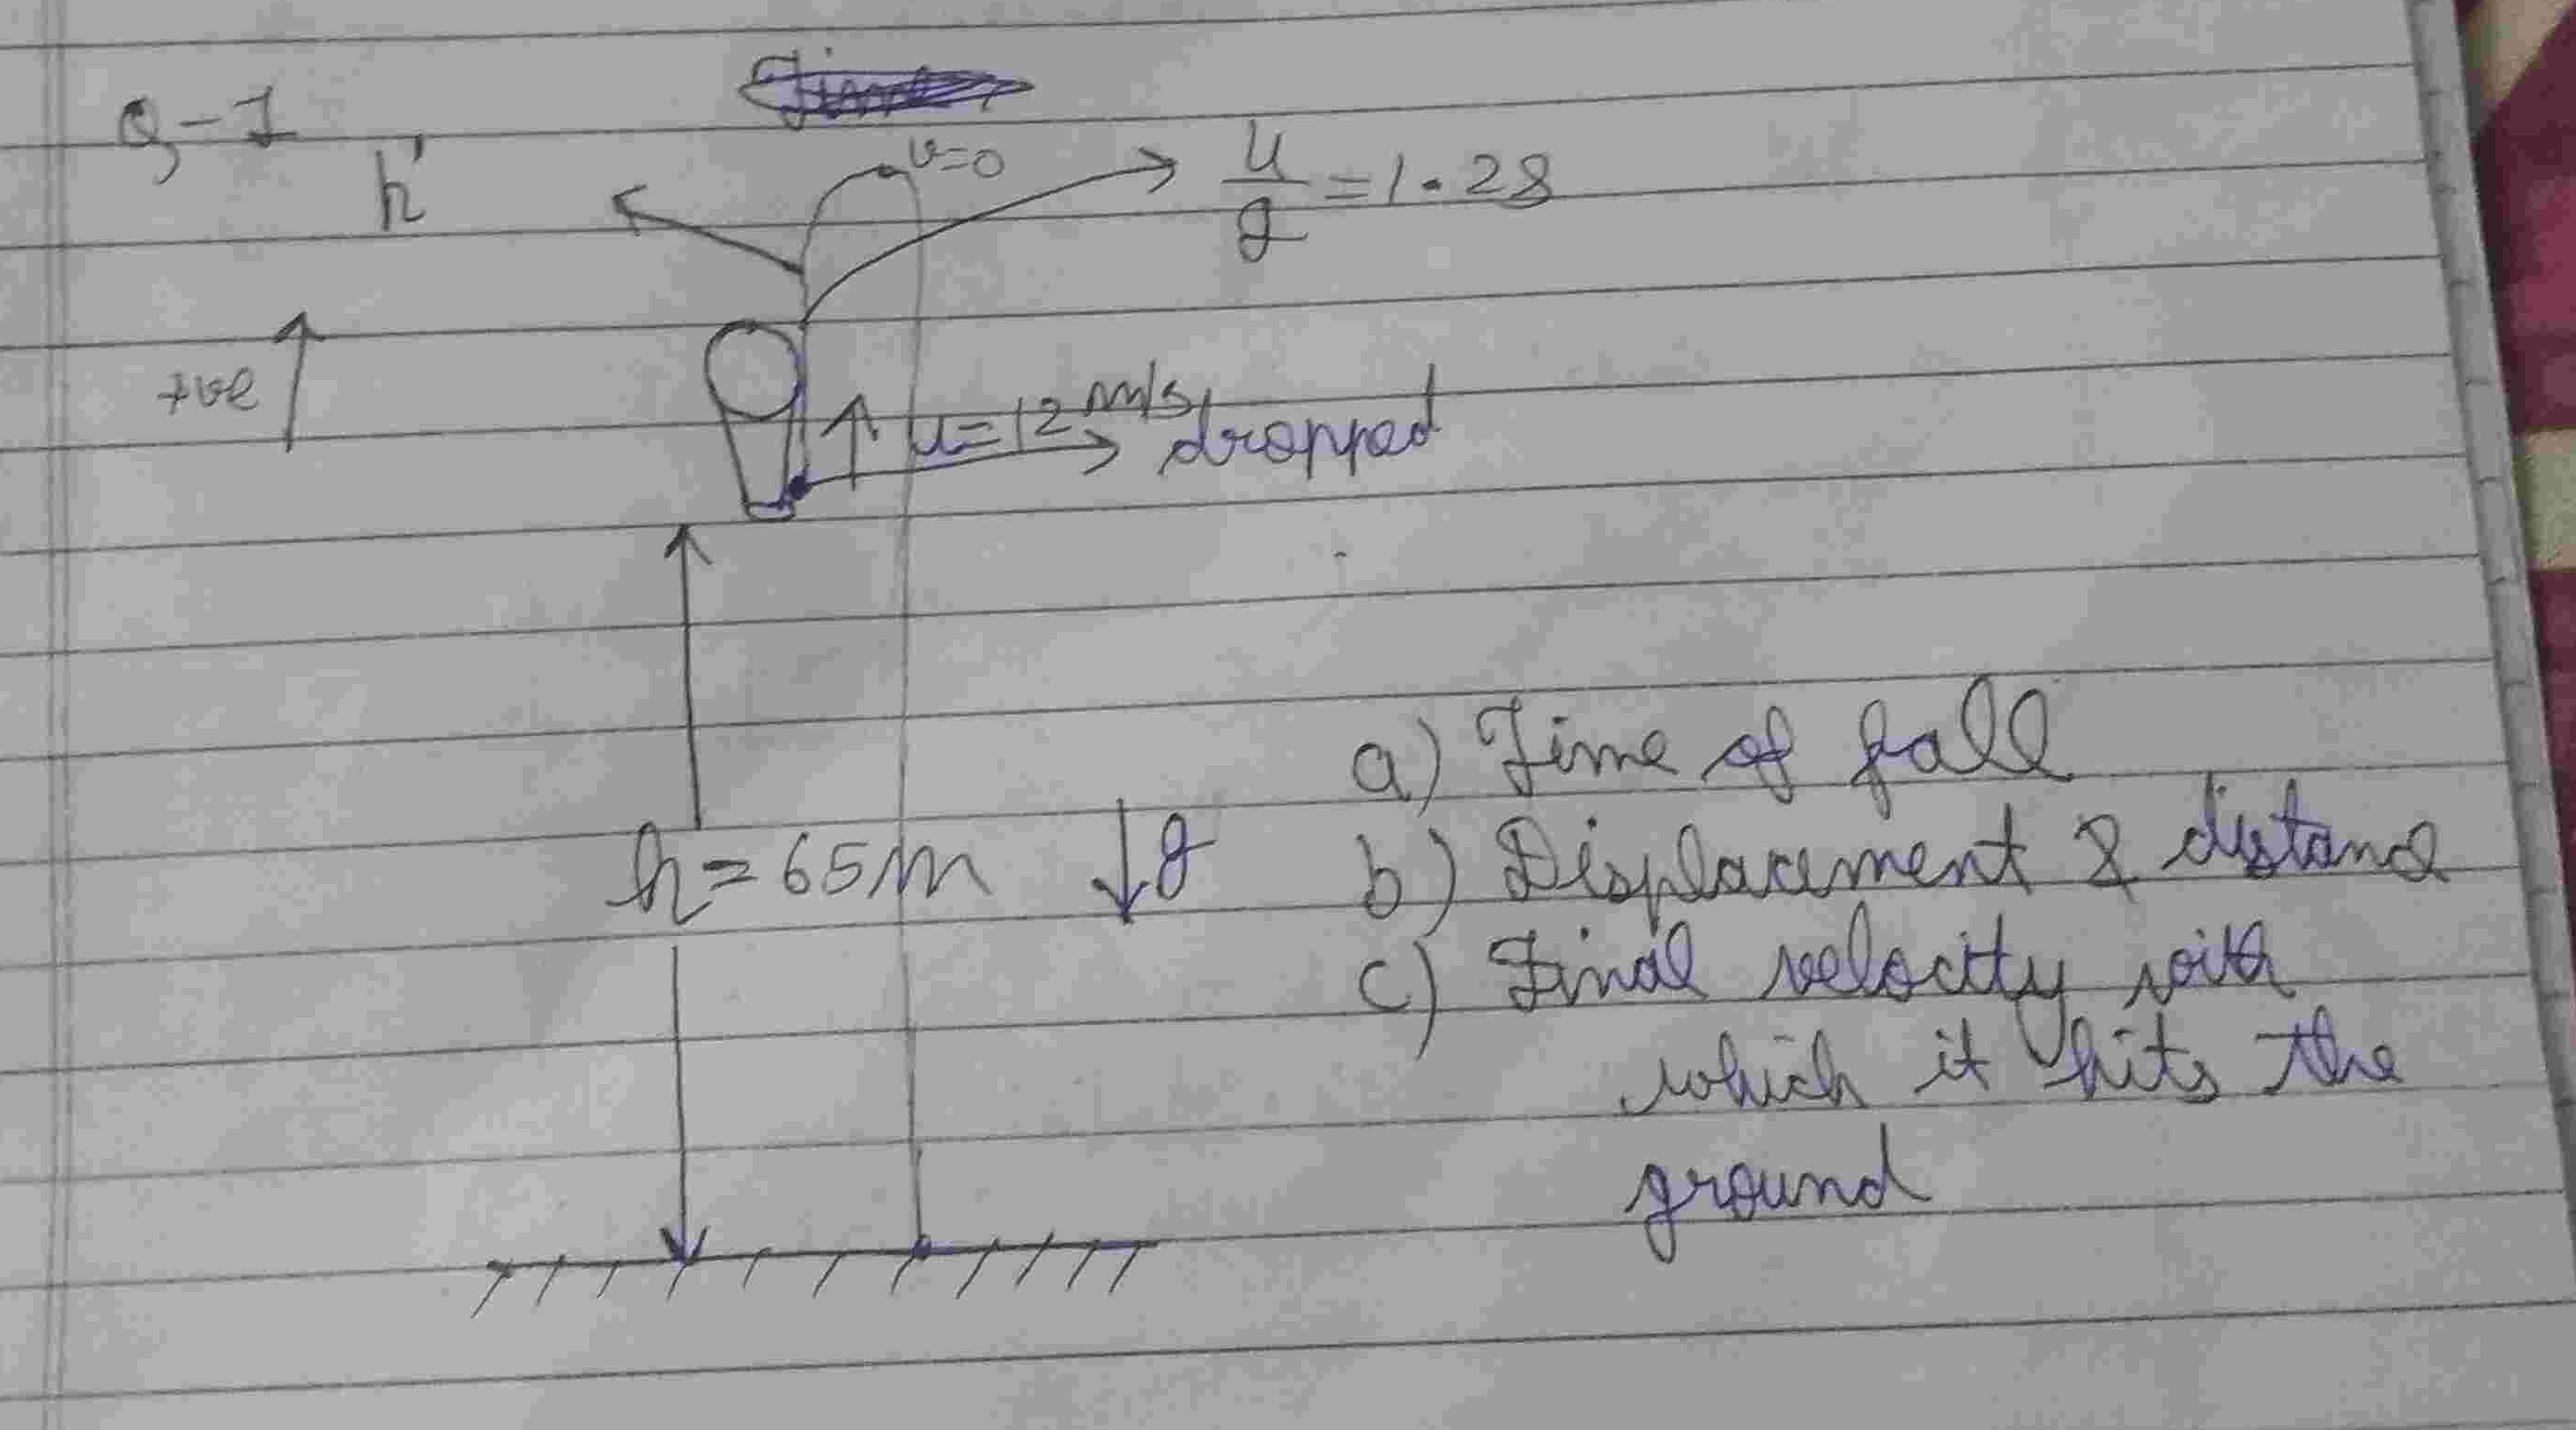 Q-1
h'
v=0
u/g = 1.28
+ve
u=12 m/s
dropped
h=65m
↓g
a) Time of fall
b) Displacement & distance
c) Final velocity with
which it hits the
ground